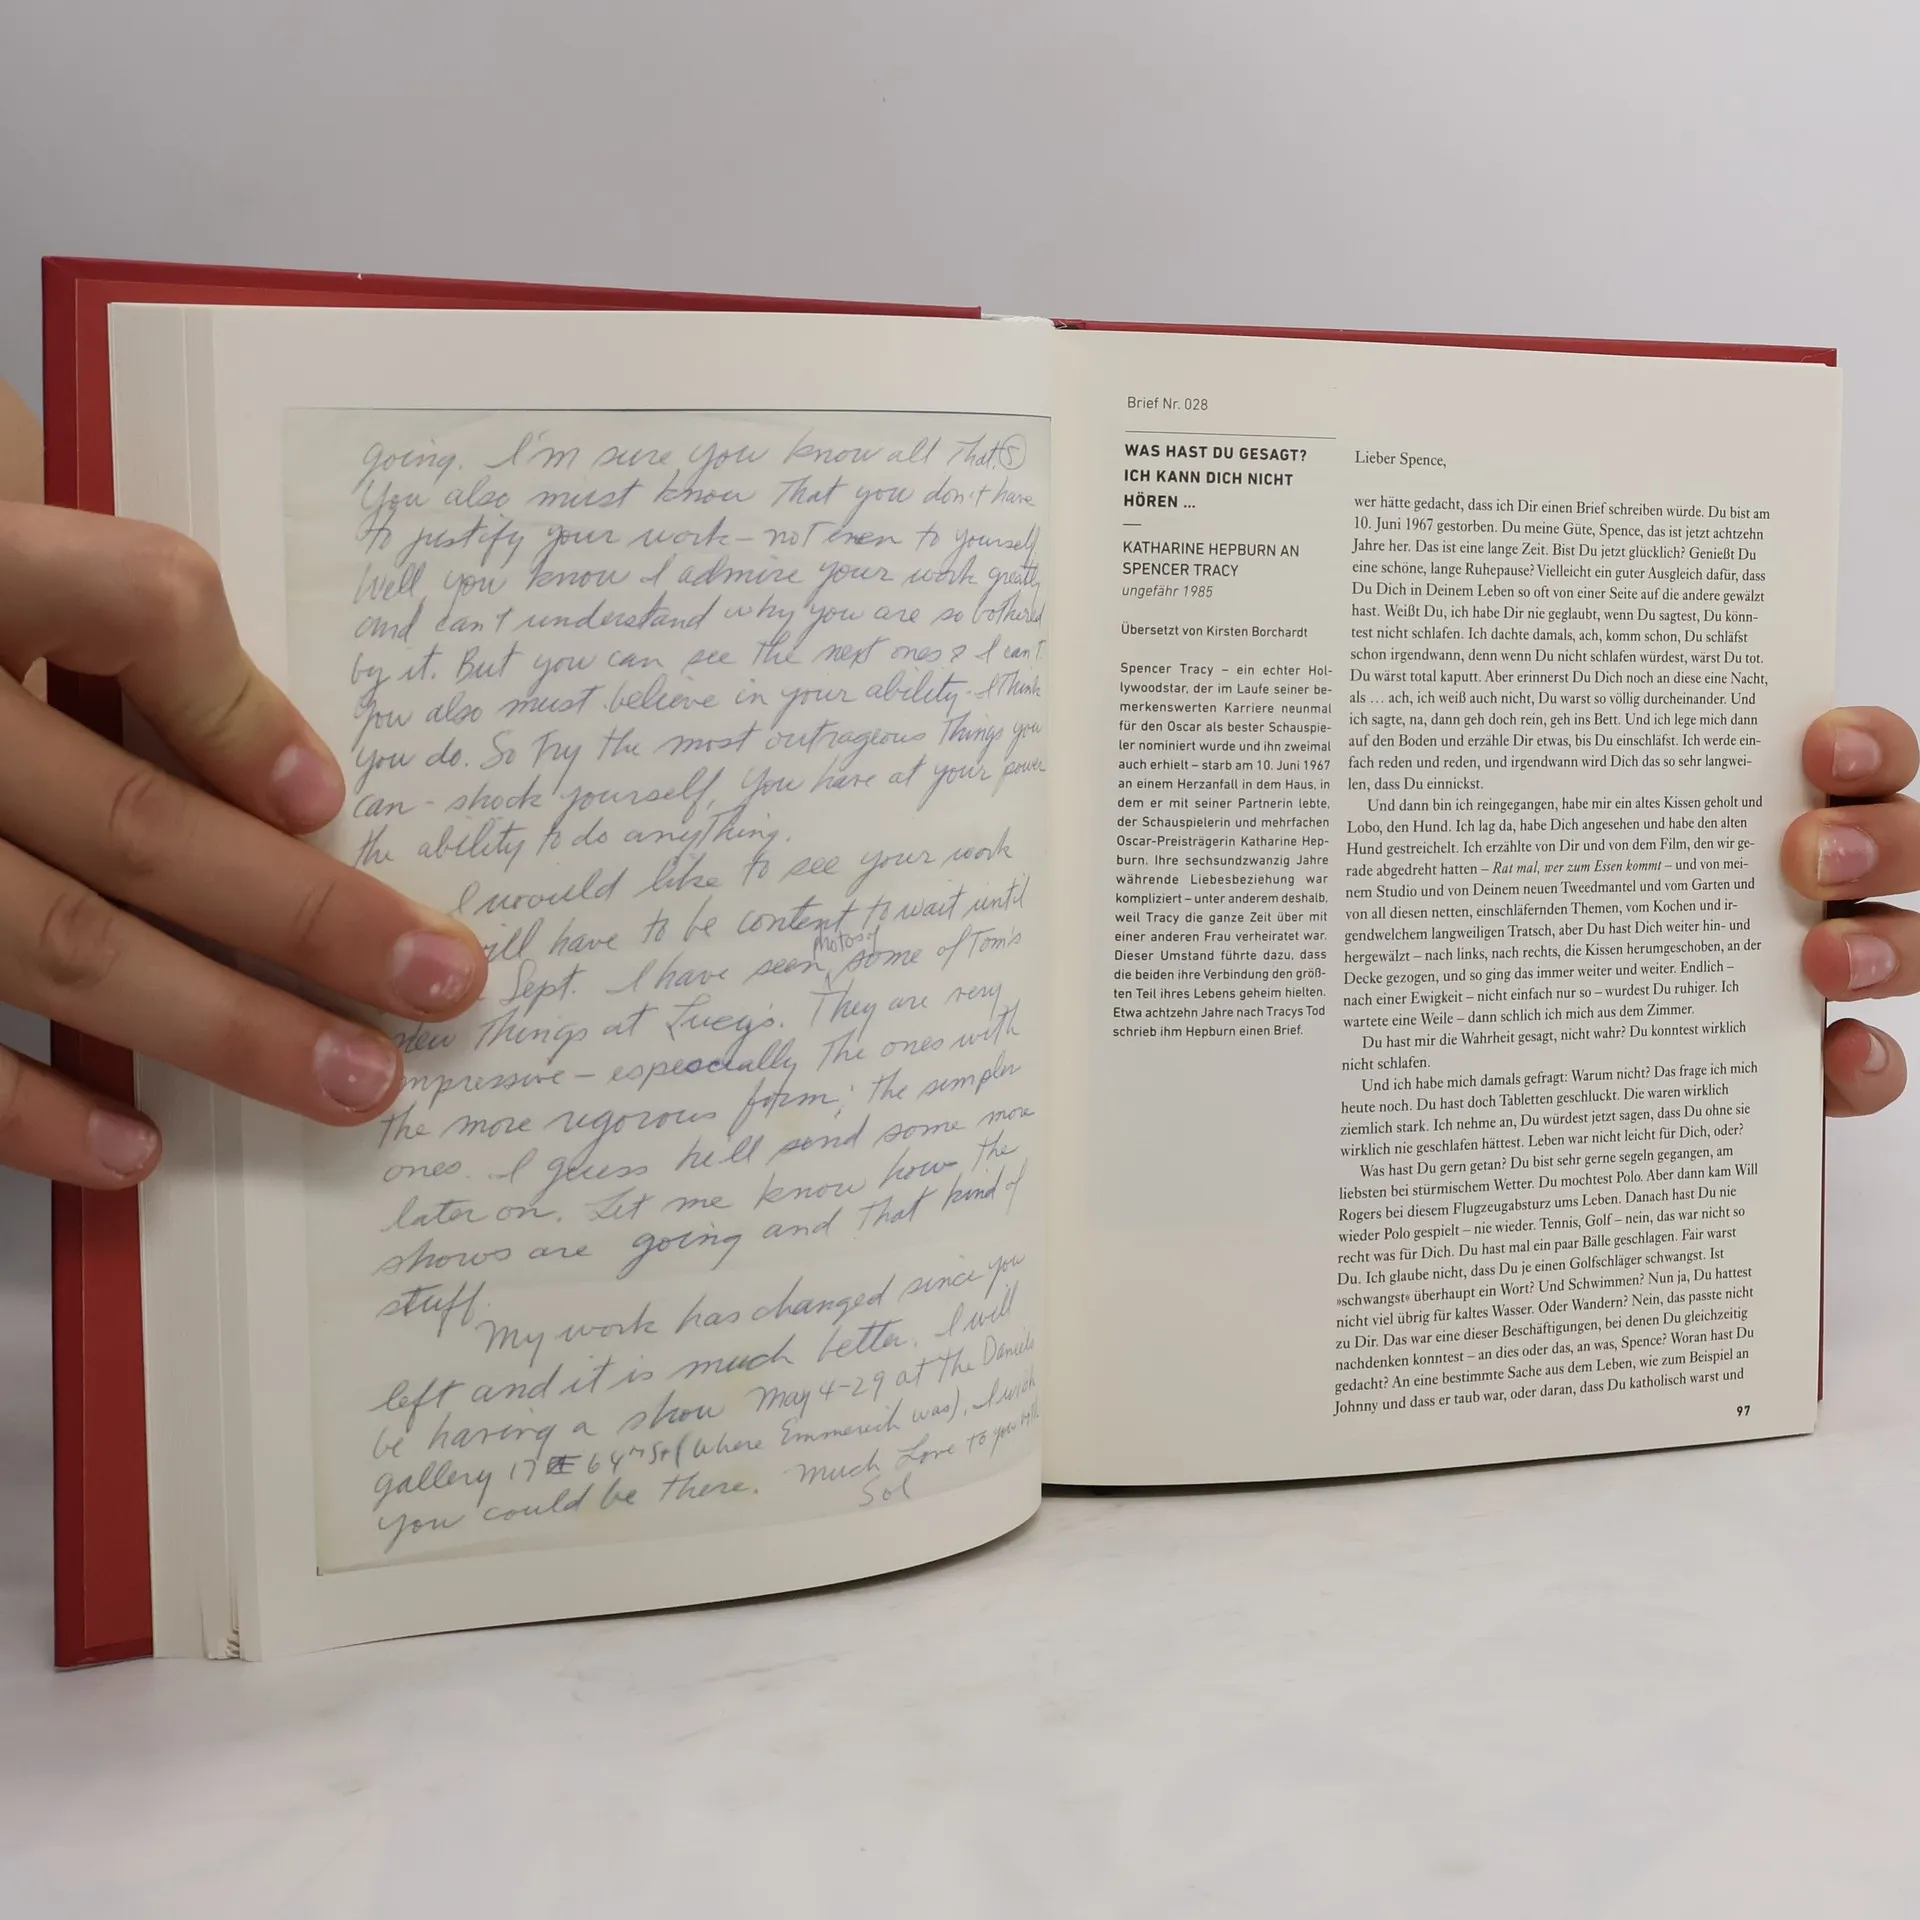 going. I'm sure you know all That. 5
You also must know That you don't have
to justify your work – not even to yourself.
Well, you know I admire your work greatly
and can't understand why you are so bothered
by it. But you can see the next ones & I can't.
You also must believe in your ability. I Think
you do. So Try the most outrageous Things you
can – shock yourself. You have at your power
the ability to do anything.
I would like to see your work
will have to be content to wait until
photos of
Sept. I have seen some of Tom's
new Things at Lucy's. They are very
impressive – especially The ones with
the more rigorous form; the simpler
ones. I guess he'll send some more
later on. Let me know how the
shows are going and That kind of
stuff.
My work has changed since you
left and it is much better. I will
be having a show May 4-29 at the Daniels
gallery 17 64th St (where Emmerich was), I wish
you could be There. Much Love to you both.
Sol
Brief Nr. 028
WAS HAST DU GESAGT?
ICH KANN DICH NICHT
HÖREN ...
KATHARINE HEPBURN AN
SPENCER TRACY
ungefähr 1985
Übersetzt von Kirsten Borchardt
Spencer Tracy – ein echter Hol-
lywoodstar, der im Laufe seiner be-
merkenswerten Karriere neunmal
für den Oscar als bester Schauspie-
ler nominiert wurde und ihn zweimal
auch erhielt – starb am 10. Juni 1967
an einem Herzanfall in dem Haus, in
dem er mit seiner Partnerin lebte,
der Schauspielerin und mehrfachen
Oscar-Preisträgerin Katharine Hep-
burn. Ihre sechsundzwanzig Jahre
währende Liebesbeziehung war
kompliziert – unter anderem deshalb,
weil Tracy die ganze Zeit über mit
einer anderen Frau verheiratet war.
Dieser Umstand führte dazu, dass
die beiden ihre Verbindung den größ-
ten Teil ihres Lebens geheim hielten.
Etwa achtzehn Jahre nach Tracys Tod
schrieb ihm Hepburn einen Brief.
Lieber Spence,
wer hätte gedacht, dass ich Dir einen Brief schreiben würde. Du bist am
10. Juni 1967 gestorben. Du meine Güte, Spence, das ist jetzt achtzehn
Jahre her. Das ist eine lange Zeit. Bist Du jetzt glücklich? Genießt Du
eine schöne, lange Ruhepause? Vielleicht ein guter Ausgleich dafür, dass
Du Dich in Deinem Leben so oft von einer Seite auf die andere gewälzt
hast. Weißt Du, ich habe Dir nie geglaubt, wenn Du sagtest, Du könn-
test nicht schlafen. Ich dachte damals, ach, komm schon, Du schläfst
schon irgendwann, denn wenn Du nicht schlafen würdest, wärst Du tot.
Du wärst total kaputt. Aber erinnerst Du Dich noch an diese eine Nacht,
als … ach, ich weiß auch nicht, Du warst so völlig durcheinander. Und
ich sagte, na, dann geh doch rein, geh ins Bett. Und ich lege mich dann
auf den Boden und erzähle Dir etwas, bis Du einschläfst. Ich werde ein-
fach reden und reden, und irgendwann wird Dich das so sehr langwei-
len, dass Du einnickst.
Und dann bin ich reingegangen, habe mir ein altes Kissen geholt und
Lobo, den Hund. Ich lag da, habe Dich angesehen und habe den alten
Hund gestreichelt. Ich erzählte von Dir und von dem Film, den wir ge-
rade abgedreht hatten – Rat mal, wer zum Essen kommt – und von mei-
nem Studio und von Deinem neuen Tweedmantel und vom Garten und
von all diesen netten, einschläfernden Themen, vom Kochen und ir-
gendwelchem langweiligen Tratsch, aber Du hast Dich weiter hin- und
hergewälzt – nach links, nach rechts, die Kissen herumgeschoben, an der
Decke gezogen, und so ging das immer weiter und weiter. Endlich –
nach einer Ewigkeit – nicht einfach nur so – wurdest Du ruhiger. Ich
wartete eine Weile – dann schlich ich mich aus dem Zimmer.
Du hast mir die Wahrheit gesagt, nicht wahr? Du konntest wirklich
nicht schlafen.
Und ich habe mich damals gefragt: Warum nicht? Das frage ich mich
heute noch. Du hast doch Tabletten geschluckt. Die waren wirklich
ziemlich stark. Ich nehme an, Du würdest jetzt sagen, dass Du ohne sie
wirklich nie geschlafen hättest. Leben war nicht leicht für Dich, oder?
Was hast Du gern getan? Du bist sehr gerne segeln gegangen, am
liebsten bei stürmischem Wetter. Du mochtest Polo. Aber dann kam Will
Rogers bei diesem Flugzeugabsturz ums Leben. Danach hast Du nie
wieder Polo gespielt – nie wieder. Tennis, Golf – nein, das war nicht so
recht was für Dich. Du hast mal ein paar Bälle geschlagen. Fair warst
Du. Ich glaube nicht, dass Du je einen Golfschläger schwangst. Ist
»schwangst« überhaupt ein Wort? Und Schwimmen? Nun ja, Du hattest
nicht viel übrig für kaltes Wasser. Oder Wandern? Nein, das passte nicht
zu Dir. Das war eine dieser Beschäftigungen, bei denen Du gleichzeitig
nachdenken konntest – an dies oder das, an was, Spence? Woran hast Du
gedacht? An eine bestimmte Sache aus dem Leben, wie zum Beispiel an
Johnny und dass er taub war, oder daran, dass Du katholisch warst und
97